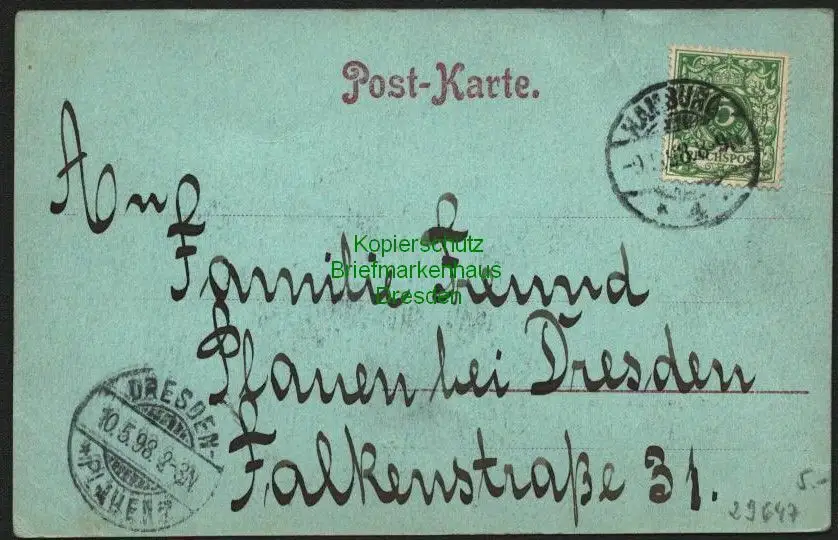 Post-Karte.
HAMBURG
5
REICHSPOST
* 4.
An
Familie Freund
Plauen bei Dresden
Falkenstraße 31.
Kopierschutz
Briefmarkenhaus
Dresden
DRESDEN-
10.5.98. 2-3N
*PLAUEN*
5.-
29647